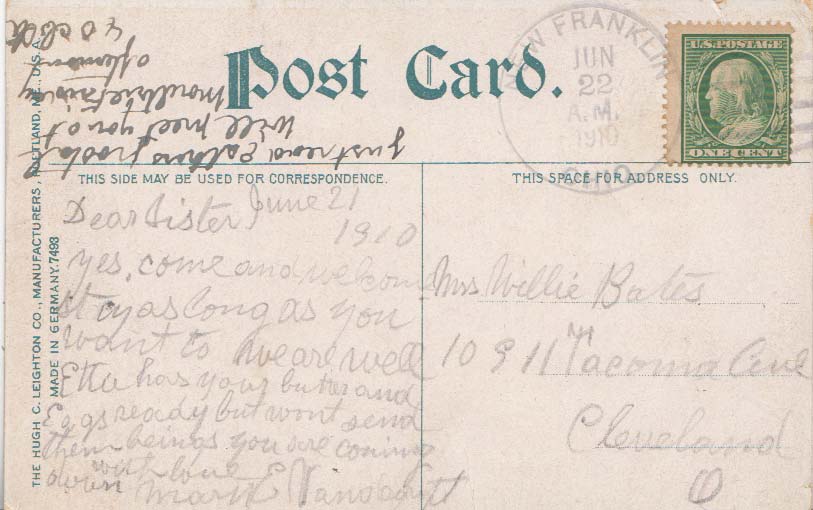 Post Card.
NEW FRANKLIN
JUN
22
A.M.
1910
OHIO
U.S. POSTAGE
ONE CENT
THIS SIDE MAY BE USED FOR CORRESPONDENCE.
THIS SPACE FOR ADDRESS ONLY.
THE HUGH C. LEIGHTON CO., MANUFACTURERS, PORTLAND, ME., U.S.A.
MADE IN GERMANY. 7493
just read
Will meet you at
afternoon
Dear Sister June 21
1910
yes, come and welcome
stay as long as you
want to we are well
Etta has your butter and
Eggs ready but wont send
them being as you are coming
down with love
Mark E
Mrs Willie Bates
10911 Tacoma Ave
Cleveland
O